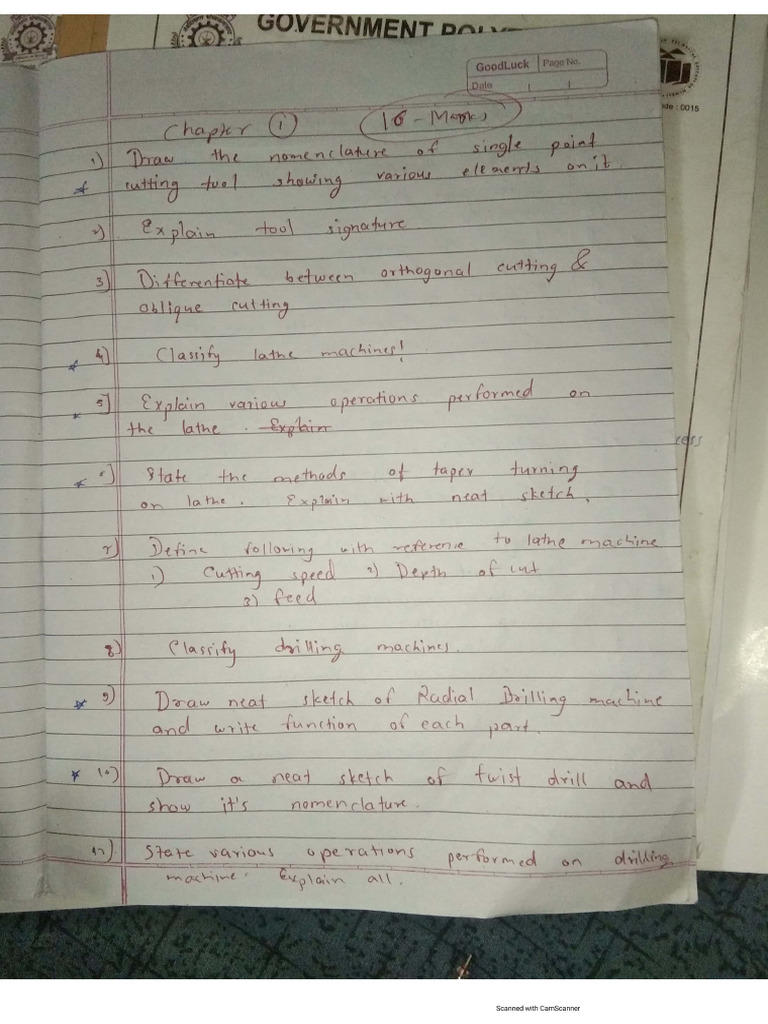 GOVERNMENT POLY
GoodLuck Page No.
Date
: 0015
Chapter 1 16 - Marks
1) Draw the nomenclature of single point
cutting tool showing various elements on it.
2) Explain tool signature
3) Differentiate between orthogonal cutting &
oblique cutting
4) Classify lathe machines!
5) Explain various operations performed on
the lathe. Explain
6) State the methods of taper turning
on lathe. Explain with neat sketch.
7) Define following with reference to lathe machine
1) Cutting speed 2) Depth of cut
3) feed
8) Classify drilling machines.
9) Draw neat sketch of Radial Drilling machine
and write function of each part.
10) Draw a neat sketch of twist drill and
show it's nomenclature.
State various operations performed on drilling
machine. Explain all.
Scanned with CamScanner